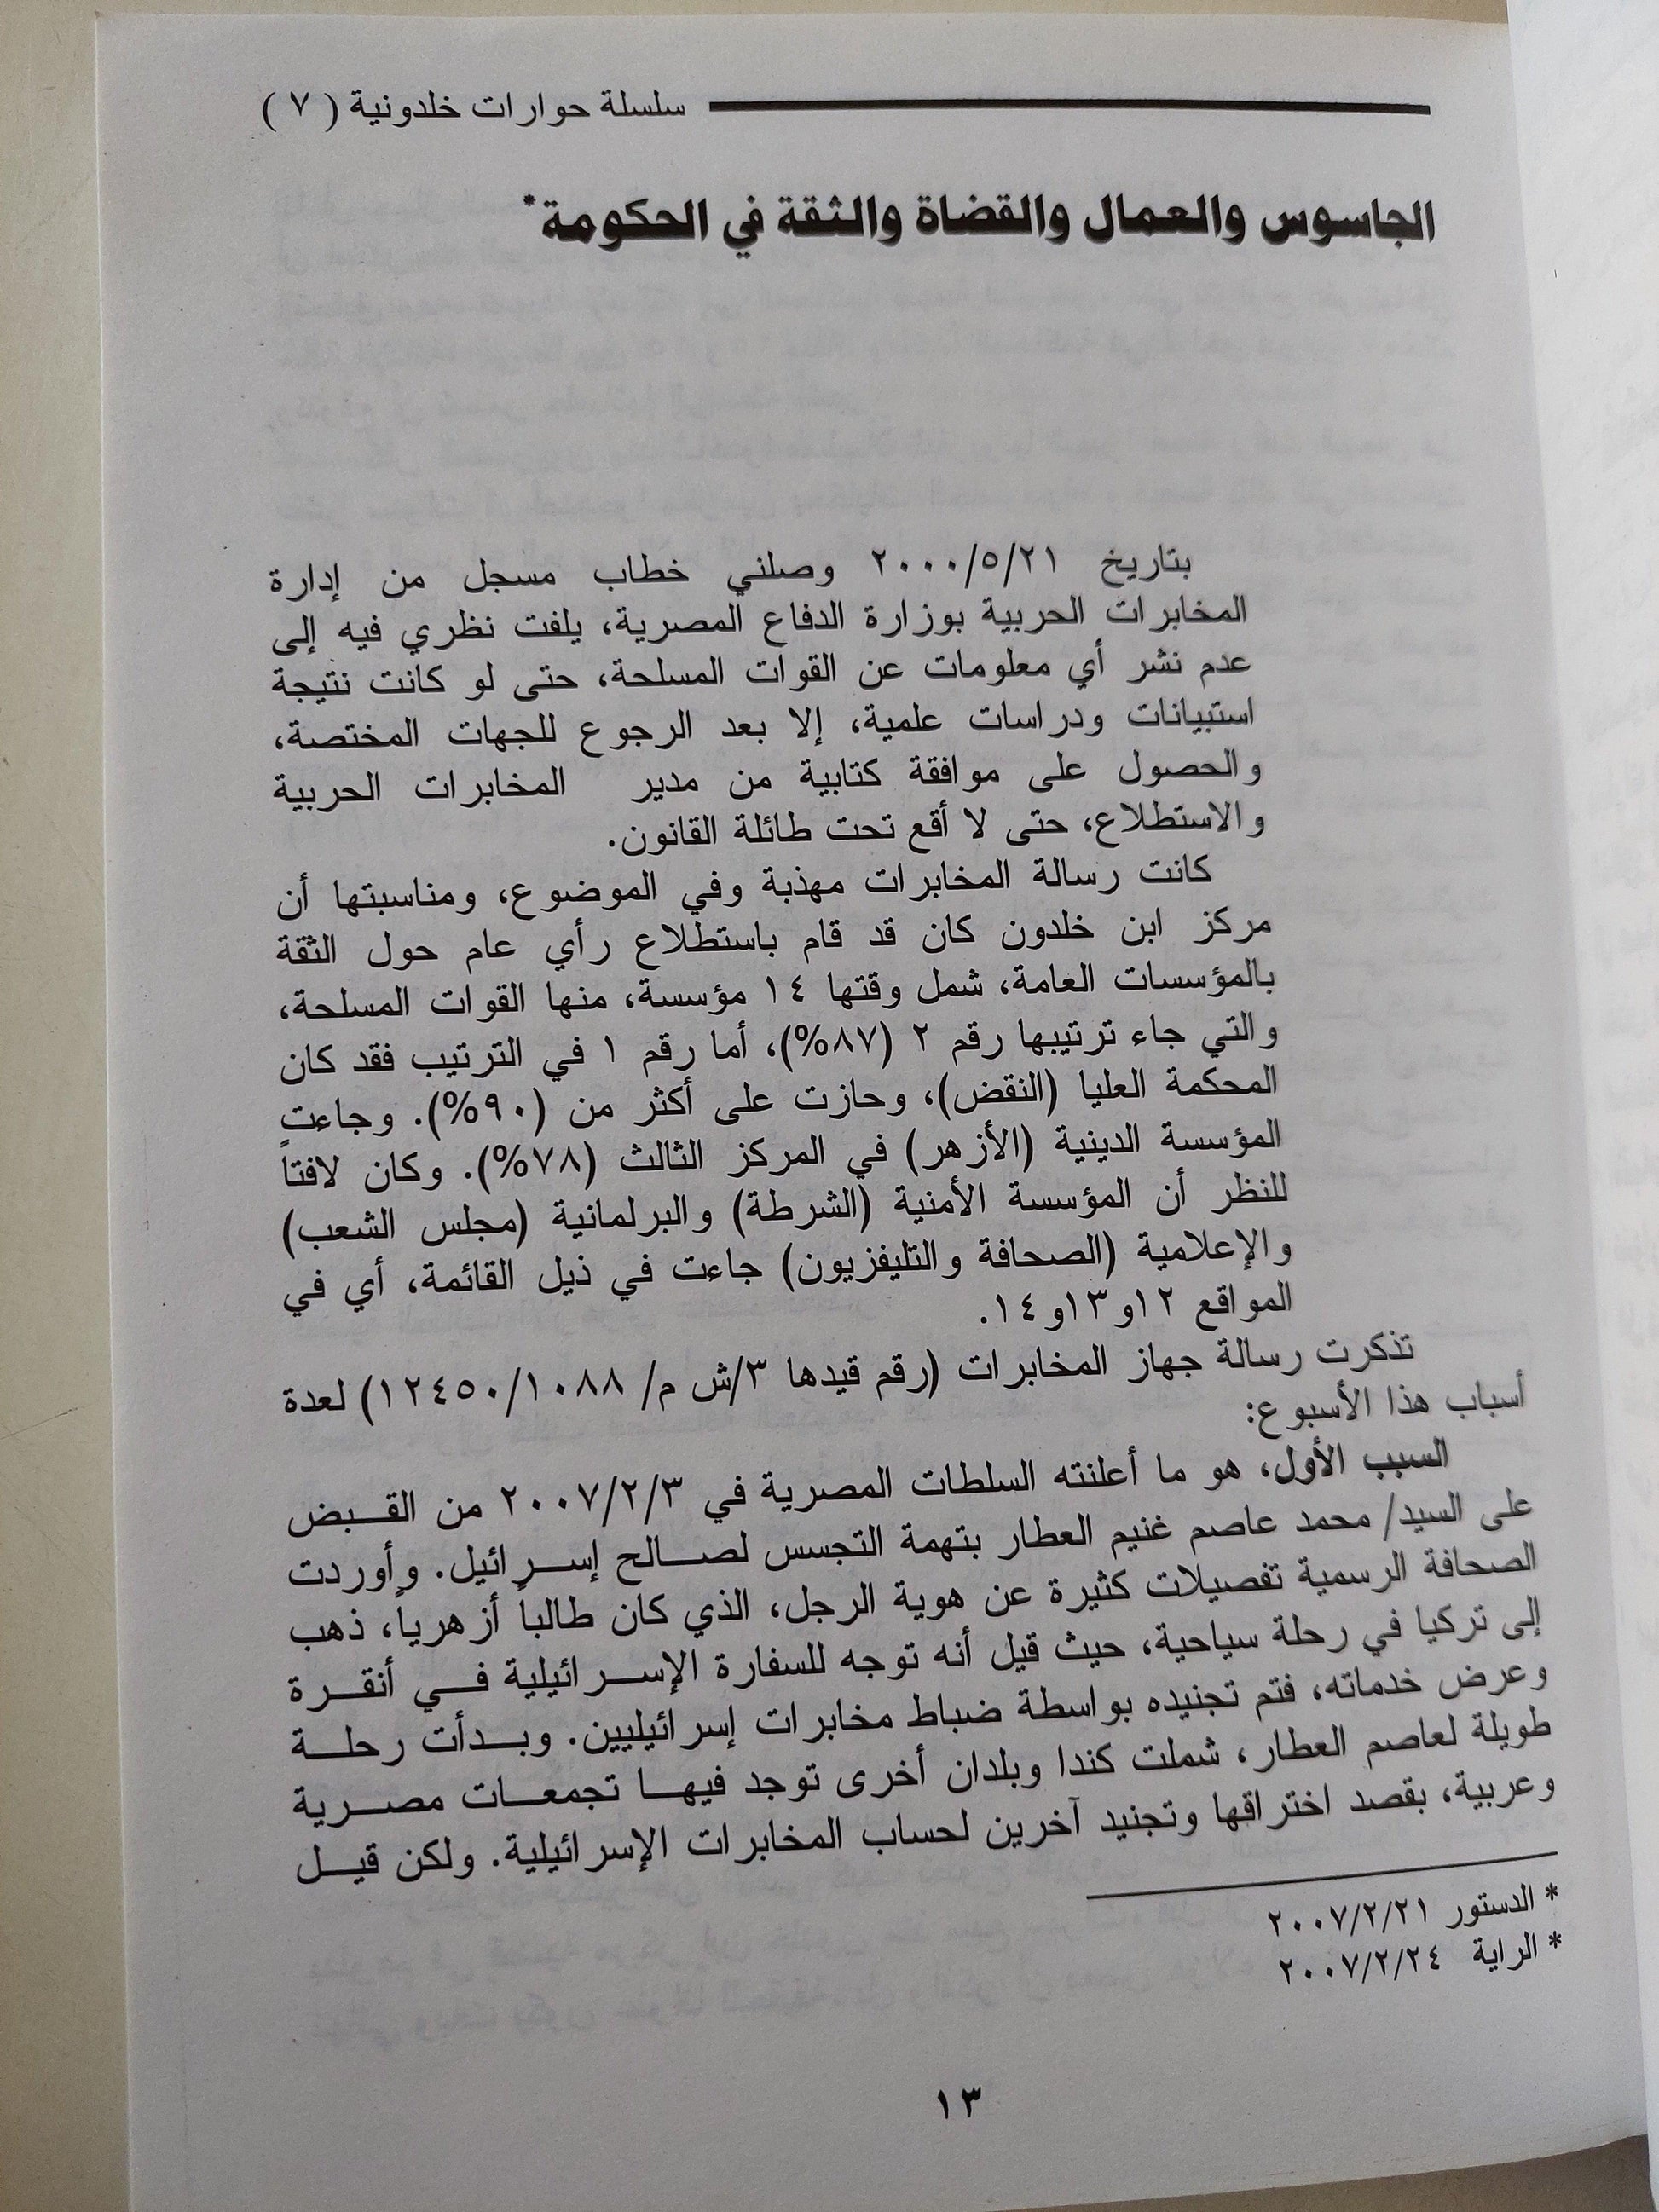 سلسلة حوارات خلدونية ( ٧ )
الجاسوس والعمال والقضاة والثقة في الحكومة*
بتاريخ ٢٠٠٠/٥/٢١ وصلني خطاب مسجل من إدارة
المخابرات الحربية بوزارة الدفاع المصرية، يلفت نظري فيه إلى
عدم نشر أي معلومات عن القوات المسلحة، حتى لو كانت نتيجة
استبيانات ودراسات علمية، إلا بعد الرجوع للجهات المختصة،
والحصول على موافقة كتابية من مدير المخابرات الحربية
والاستطلاع، حتى لا أقع تحت طائلة القانون.
كانت رسالة المخابرات مهذبة وفي الموضوع، ومناسبتها أن
مركز ابن خلدون كان قد قام باستطلاع رأي عام حول الثقة
بالمؤسسات العامة، شمل وقتها ١٤ مؤسسة، منها القوات المسلحة،
والتي جاء ترتيبها رقم ٢ (٨٧%)، أما رقم ١ في الترتيب فقد كان
المحكمة العليا (النقض)، وحازت على أكثر من (٩٠%). وجاءت
المؤسسة الدينية (الأزهر) في المركز الثالث (٧٨%). وكان لافتاً
للنظر أن المؤسسة الأمنية (الشرطة) والبرلمانية (مجلس الشعب)
والإعلامية (الصحافة والتليفزيون) جاءت في ذيل القائمة، أي في
المواقع ١٢و١٣و١٤.
تذكرت رسالة جهاز المخابرات (رقم قيدها ٣/ش م/ ١٢٤٥٠/١٠٨٨) لعدة
أسباب هذا الأسبوع:
السبب الأول، هو ما أعلنته السلطات المصرية في ٢٠٠٧/٢/٣ من القبض
على السيد/ محمد عاصم غنيم العطار بتهمة التجسس لصالح إسرائيل. وأوردت
الصحافة الرسمية تفصيلات كثيرة عن هوية الرجل، الذي كان طالباً أزهرياً، ذهب
إلى تركيا في رحلة سياحية، حيث قيل أنه توجه للسفارة الإسرائيلية في أنقرة
وعرض خدماته، فتم تجنيده بواسطة ضباط مخابرات إسرائيليين. وبدأت رحلة
طويلة لعاصم العطار، شملت كندا وبلدان أخرى توجد فيها تجمعات مصرية
وعربية، بقصد اختراقها وتجنيد آخرين لحساب المخابرات الإسرائيلية. ولكن قيل
* الدستور ٢٠٠٧/٢/٢١
* الراية ٢٠٠٧/٢/٢٤
١٣